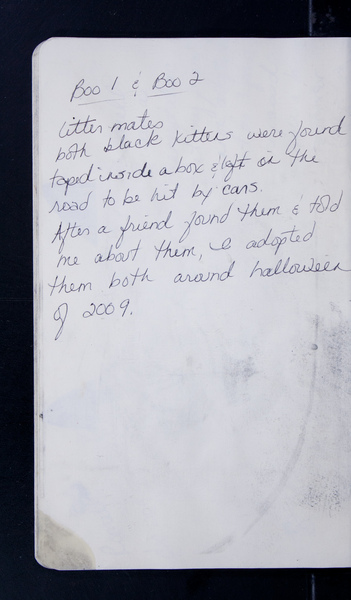 Boo 1 & Boo 2
litter mates
both black kittens were found
taped inside a box & left in the
road to be hit by cars.
After a friend found them & told
me about them, I adopted
them both around halloween
of 2009.